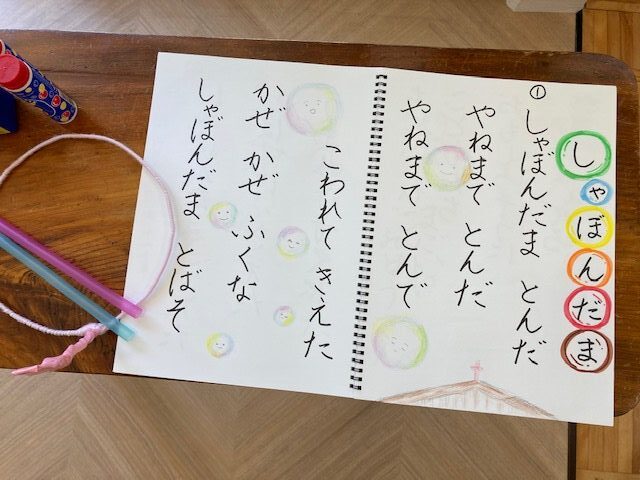 しゃぼんだま
① しゃぼんだま とんだ
やねまで とんだ
やねまで とんで
こわれて きえた
かぜ かぜ ふくな
しゃぼんだま とばそ